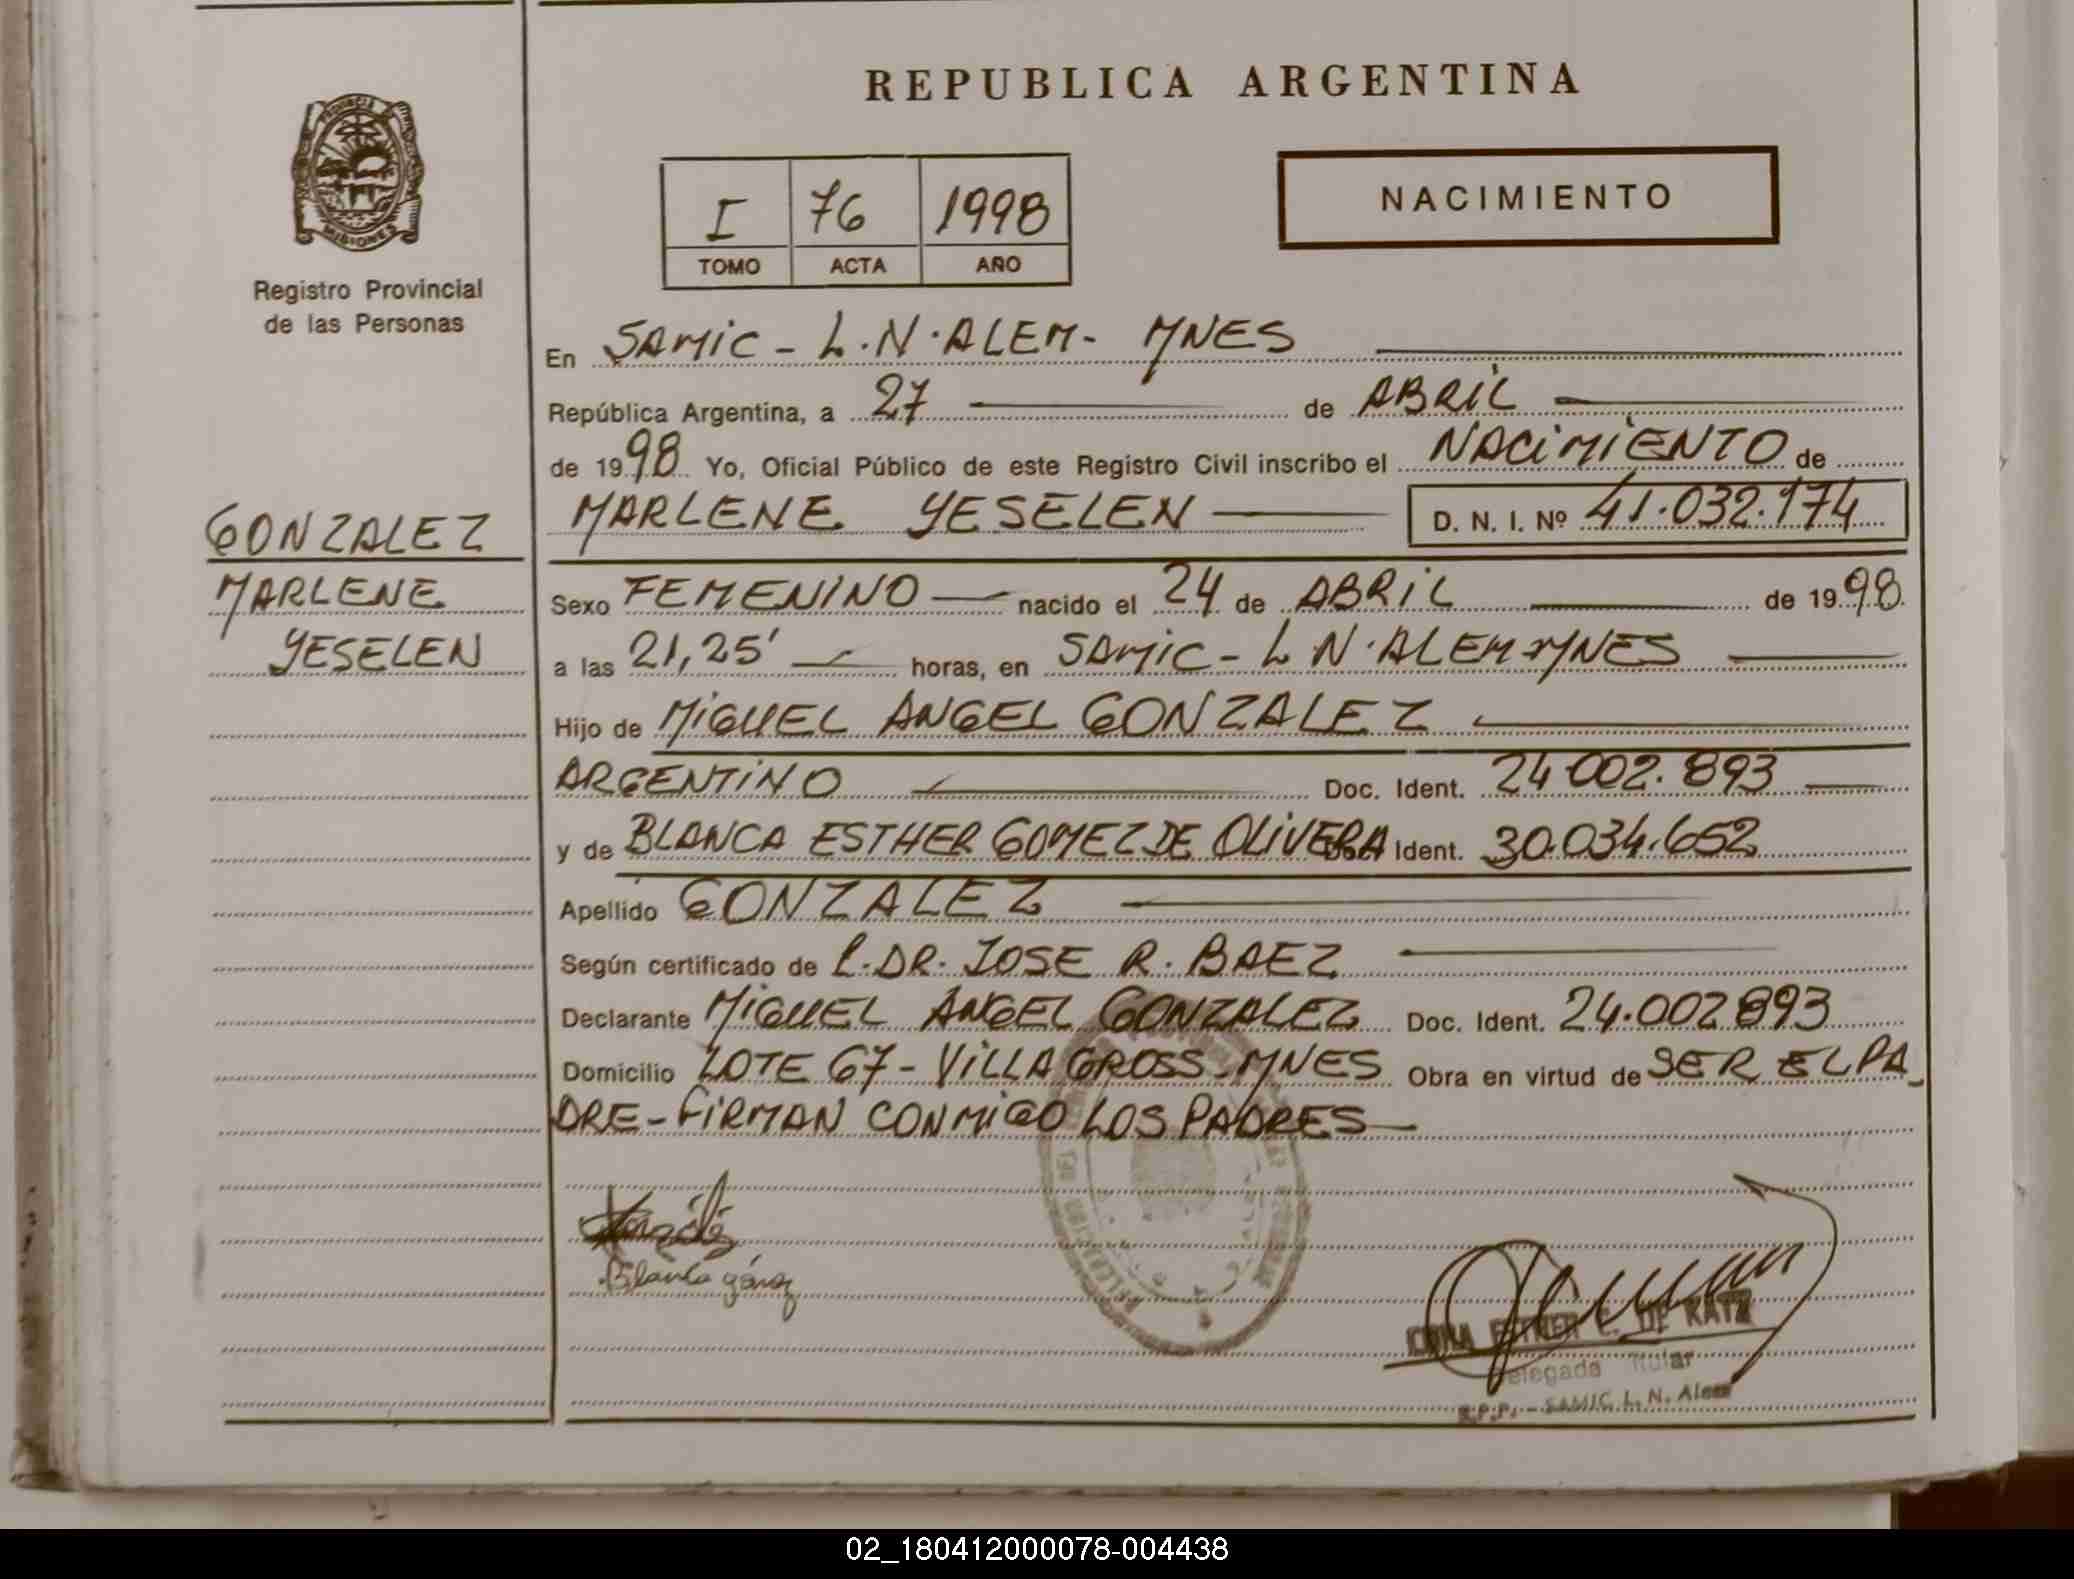 REPUBLICA ARGENTINA
PROVINCIA
MISIONES
Registro Provincial
de las Personas
I 76 1998
TOMO ACTA AÑO
NACIMIENTO
En SAMIC - L.N.ALEM- MNES
República Argentina, a 27 de ABRIL
de 1998 Yo, Oficial Público de este Registro Civil inscribo el NACIMIENTO de
MARLENE YESELEN D. N. I. Nº 41.032.174
GONZALEZ
MARLENE
YESELEN
Sexo FEMENINO nacido el 24 de ABRIL de 1998
a las 21,25' horas, en SAMIC - L N.ALEM-MNES
Hijo de MIGUEL ANGEL GONZALEZ
ARGENTINO Doc. Ident. 24.002.893
y de BLANCA ESTHER GOMEZ DE OLIVERA Ident. 30.034.652
Apellido GONZALEZ
Según certificado de L.DR. JOSE R. BAEZ
Declarante MIGUEL ANGEL GONZALEZ Doc. Ident. 24.002893
Domicilio LOTE 67 - VILLA GROSS-MNES Obra en virtud de SER EL PA-
DRE-FIRMAN CONMIGO LOS PADRES
Blanca
ESTHER C. DE KATZ
Delegada Titular
R.P.P. - SAMIC L. N. Alem
02_180412000078-004438